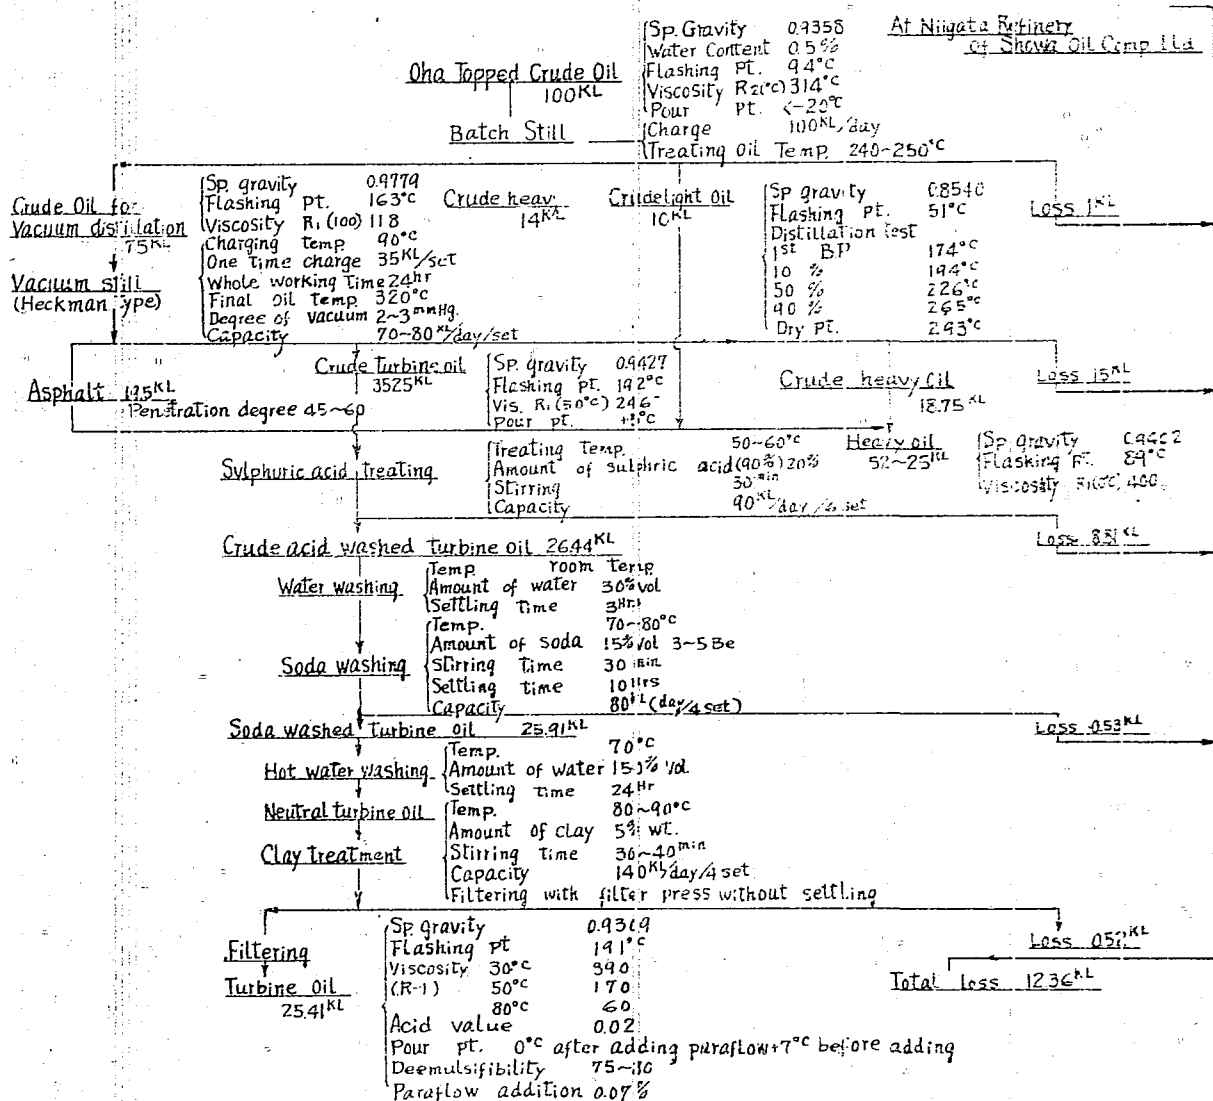 At Niigata Refinery
of Showa Oil Comp Ltd
Oha Topped Crude Oil
100KL
Sp. Gravity 0.9358
Water Content 0.5%
Flashing Pt. 94°C
Viscosity R2(°C) 314°C
Pour Pt. <-20°C
Batch Still
Charge 100KL/day
Treating Oil Temp. 240~250°C
Crude Oil for
Vacuum distillation
75KL
Vacuum still
(Heckman Type)
Sp. gravity 0.9779
Flashing Pt. 163°C
Viscosity R1(100) 118
Charging temp 90°C
One time charge 35KL/set
Whole working Time 24hr
Final Oil temp. 320°C
Degree of vacuum 2~3mmHg.
Capacity 70~80KL/day/set
Crude heavy
14KL
Crude light Oil
10KL
Sp gravity 0.8540
Flashing Pt. 51°C
Distillation test
1st B.P 174°C
10 % 194°C
50 % 226°C
90 % 265°C
Dry pt. 293°C
Loss 1KL
Asphalt 19.5KL
Penetration degree 45~60
Crude turbine oil
35.25KL
Sp. gravity 0.9427
Flashing pt. 192°C
Vis. R1(50°C) 246
Pour pt.
Crude heavy Oil
18.75KL
Loss 1.5KL
Sulphuric acid treating
Treating Temp. 50~60°C
Amount of sulphric acid(90%) 20%
Stirring 30min
Capacity 90KL/day/
set
Heavy oil
52~25KL
Sp gravity
Flashing Pt. 89°C
Viscosity 400
Loss 8.81KL
Crude acid washed Turbine oil 26.44KL
Water washing
Temp room temp
Amount of water 30%vol
Settling time 3Hrs
Soda washing
Temp. 70~80°C
Amount of soda 15%vol 3~5Be
Stirring Time 30min
Settling time 10Hrs
Capacity 80KL(day/4set)
Soda washed Turbine oil 25.91KL
Loss 0.53KL
Hot water washing
Temp. 70°C
Amount of water 150% Vol.
Settling time 24Hr
Neutral turbine oil
Clay treatment
Temp. 80~90°C
Amount of clay 5% wt.
Stirring time 30~40min
Capacity 140KL/day/4set
Filtering with filter press without settling
Filtering
Turbine Oil
25.41KL
Sp. gravity
Flashing pt 191°C
Viscosity 30°C 390
(R-1) 50°C 170
80°C 60
Acid value 0.02
Pour pt. 0°C after adding paraflow+7°C before adding
Deemulsifibility 75~
Paraflow addition 0.07%
Loss 0.52KL
Total loss 12.36KL